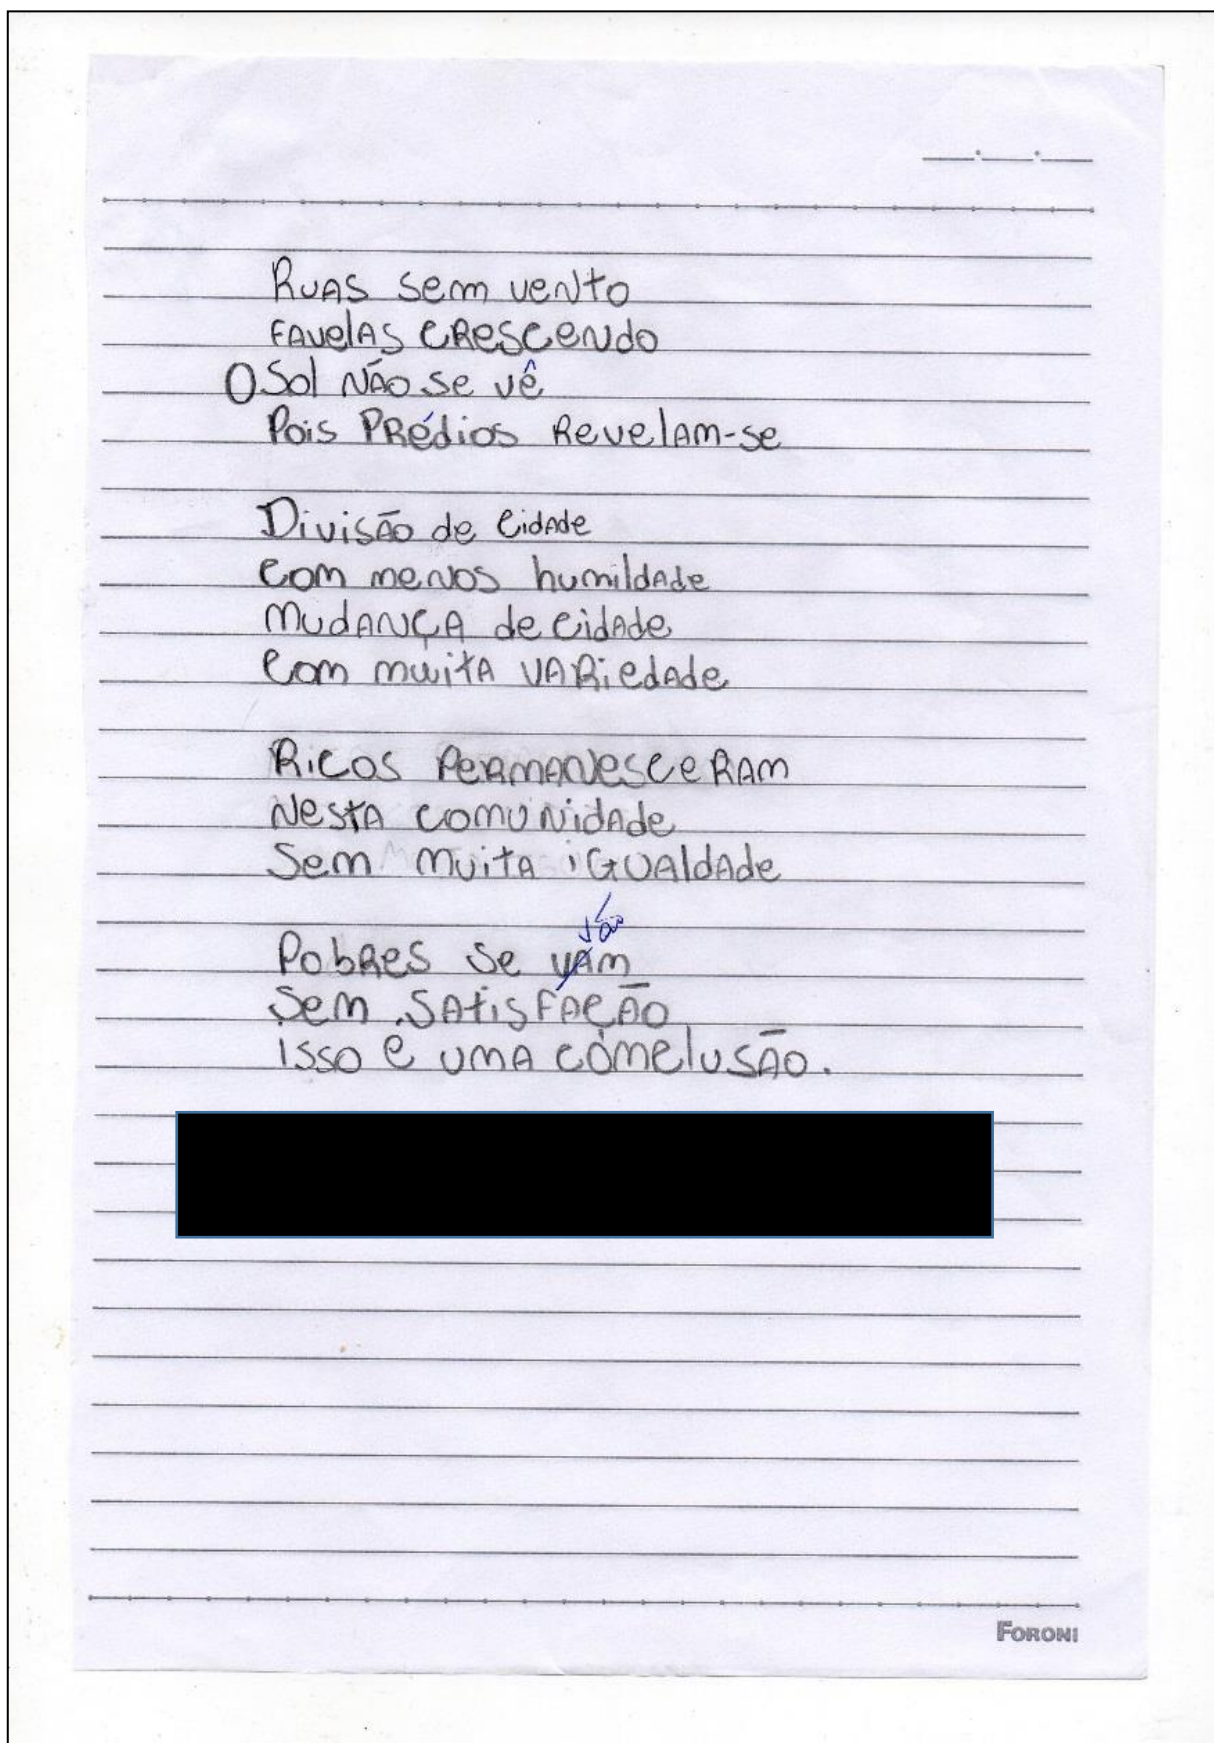 Ruas sem vento
Favelas crescendo
O Sol não se vê
Pois Prédios Revelam-se
Divisão de cidade
com menos humildade
mudança de cidade
com muita variedade
Ricos Permanesceram
Nesta comunidade
Sem muita igualdade
vão
Pobres se vam
Sem Satisfação
isso e uma comclusão.
FORONI